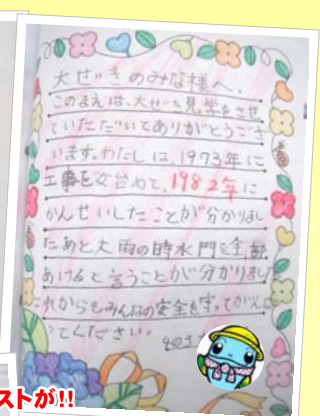 大ぜきのみな様へ。
このまえは、大ぜき見学をさせ
ていただいてありがとうござ
います。わたしは、1973年に
工事を始めて、1982年に
かんせいしたことが分かりまし
たあと大雨の時水門を全部
あけると言うことが分かりました
これからもみんなの安全を守ってがんば
ってください。
4の
ストが!!